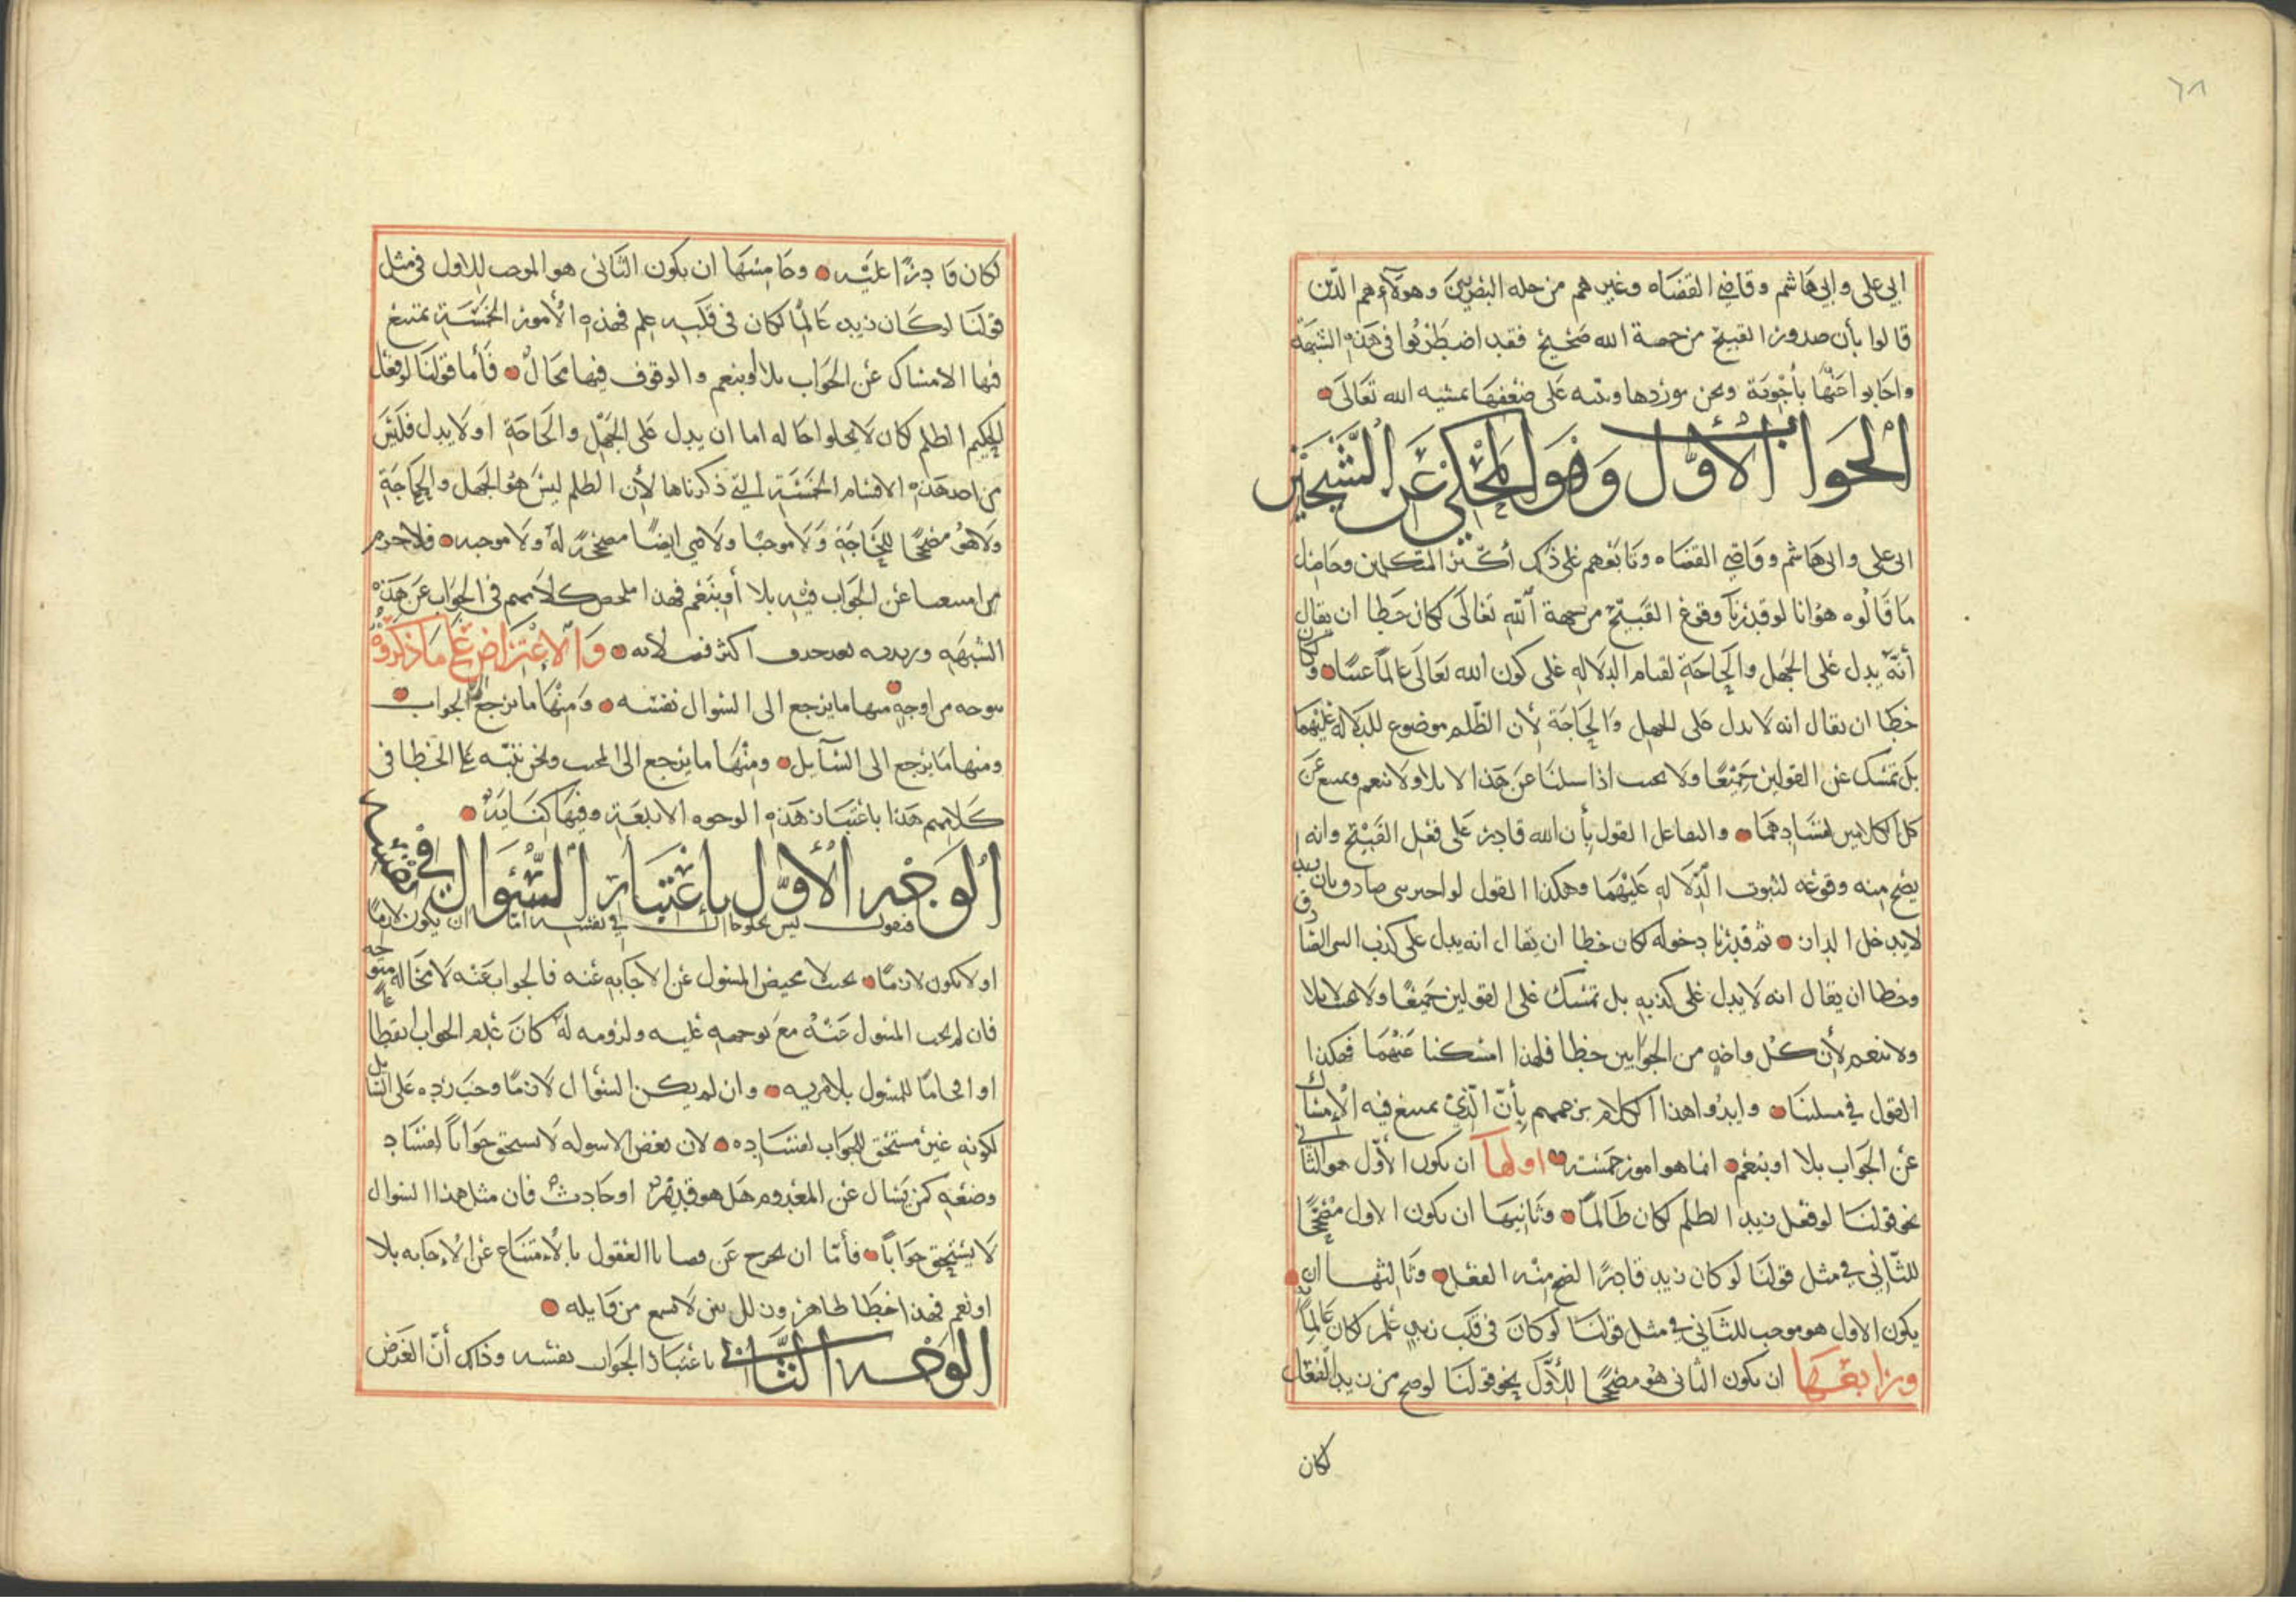 ٦٨
ابي علي وابي هاشم وقاضي القضاه وغيرهم من جله البصريين وهولاء هم الذين
قالوا بأن صدور القبيح من جهة الله صحيح فقد اضطربوا في هذه الشبهة
واجابوا عنها بأجوبة ونحن نوردها وننبه على ضعفها بمشيه الله تعالى
الجواب الاول وهو المحكي عن الشيخين
ابي علي وابي هاشم وقاضي القضاه وتابعهم على ذلك أكثر المتكلمين وحاصل
ما قالوه هو انا لو قدرنا وقوع القبيح من جهة الله تعالى لكان خطا ان يقال
أنه يدل على الجهل والحاجة لقيام الدلاله على كون الله تعالى عالما غنيا وكان
خطا ان يقال انه لا يدل على الجهل والحاجة لأن الظلم موضوع للدلاله عليهما
بل نمسك عن القولين جميعا ولا نجيب اذا سلنا عن هذا لا بلا ولا بنعم ونمنع عن
كلا الكلامين لفسادهما والقول بأن الله قادر على فعل القبيح وانه
يصح منه وقوعه لثبوت الدلاله عليهما وهكذا القول لو اخبر نبي صادق بان زيد
لا يدخل الدار ثم قدرنا دخوله لكان خطا ان يقال انه يدل على كذب النبي الصادق
وخطا ان يقال انه لا يدل على كذبه بل نمسك على القولين جميعا ولا نجيب لا بلا
ولا بنعم لأن كل واحد من الجوابين خطا فلهذا امسكنا عنهما فهكذا
القول في مسلتنا وايدوا هذا الكلام بزعمهم بأن الذي نمنع فيه الإمساك
عن الجواب بلا او بنعم انما هو امور خمسة اولها ان يكون الأول هو الثاني
نحو قولنا لو فعل زيد الظلم لكان ظالما وثانيها ان يكون الاول مصححا
للثاني في مثل قولنا لو كان زيد قادرا لصح منه الفعل وثالثها ان
يكون الاول هو موجب للثاني في مثل قولنا لو كان في قلب زيد علم لكان عالما
ورابعها ان يكون الثاني هو مصححا للأول نحو قولنا لو صح من زيد الفعل
لكان
لكان قادرا عليه وخامسها ان يكون الثاني هو الموجب للاول في مثل
قولنا لو كان زيد عالما لكان في قلبه علم فهذه الأمور الخمسة يمتنع
فيها الامساك عن الجواب بلا أو بنعم والوقوف فيها محال فأما قولنا لو فعل
الحكيم الظلم لكان لا يخلوا حاله اما ان يدل على الجهل والحاجة او لا يدل فليس
من احد هذه الاقسام الخمسة التي ذكرناها لأن الظلم ليس هو الجهل والحاجة
ولا هو مصححا للحاجة ولا موجبا ولا هي ايضا مصححة له ولا موجبه فلا جرم
امتنعنا عن الجواب فيه بلا أو بنعم فهذا ملخص كلامهم في الجواب عن هذه
الشبهه وزبدته بعد حذف اكثر فضلاته والاعتراض على ما ذكروه
من اوجه منها ما يرجع الى السوال نفسه ومنها ما يرجع الى الجواب
ومنها ما يرجع الى السايل ومنها ما يرجع الى المجيب ونحن ننبه على الخطا في
كلامهم هذا باعتبار هذه الوجوه الاربعة وفيها كفاية
الوجه الأول باعتبار السؤال في نفسه
فنقول ليس يخلو حال في نفسه اما ان يكون لازما
او لا يكون لازما بحيث لا محيص للمسؤول عن الاجابه عنه فالجواب عنه لا محاله متوجه
فان لم يجب المسؤول عنه مع توجهه عليه ولزومه له كان عدم الجواب انقطاعا
او افحاما للمسول بلا مريه وان لم يكن السؤال لازما وجب رده على السايل
لكونه غير مستحق للجواب لفساده لان بعض الاسوله لا يستحق جوابا لفساد
وضعه كمن يسال عن المعدوم هل هو قديم او حادث فان مثل هذا السوال
لا يستحق جوابا فأما ان نخرج عن قضايا العقول بالأمتناع عن الإجابه بلا
او نعم فهذا خطا ظاهر وزلل بين لا يسمع من قايله
الوجه الثاني باعتبار الجواب نفسه وذلك أن الغرض